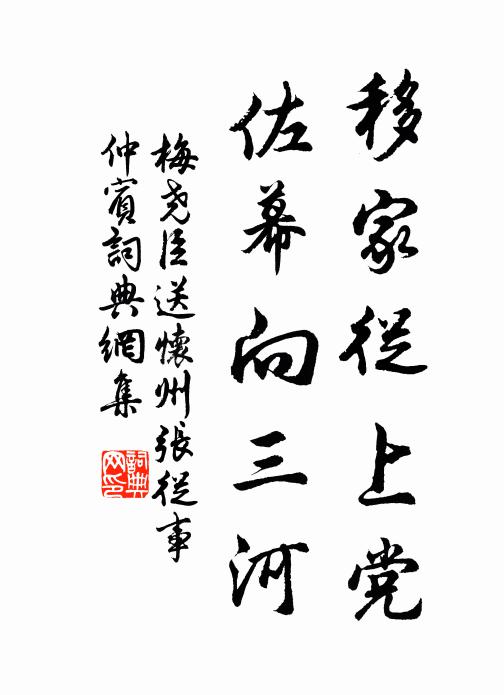 移家從上党
佐幕向三河
梅堯臣送懷州張從事
仲賓詞典網集
詞典
网印